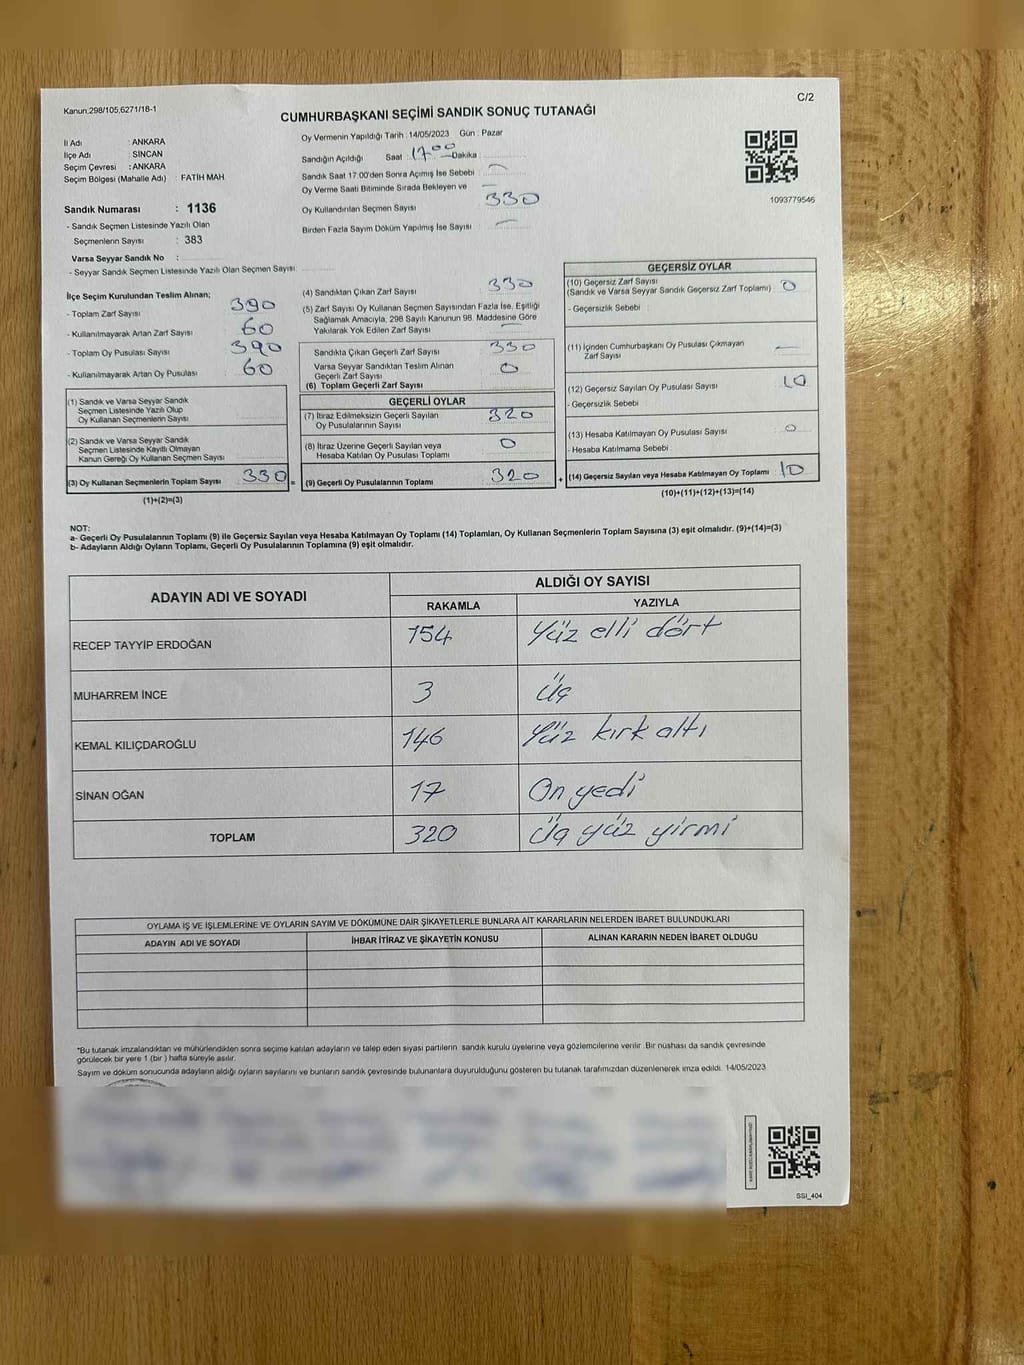 Kanun:298/105,6271/18-1
C/2
CUMHURBAŞKANI SEÇİMİ SANDIK SONUÇ TUTANAĞI
İl Adı : ANKARA
İlçe Adı : SİNCAN
Seçim Çevresi : ANKARA
Seçim Bölgesi (Mahalle Adı) : FATİH MAH
Sandık Numarası : 1136
- Sandık Seçmen Listesinde Yazılı Olan
Seçmenlerin Sayısı : 383
Varsa Seyyar Sandık No :
- Seyyar Sandık Seçmen Listesinde Yazılı Olan Seçmen Sayısı:
Oy Vermenin Yapıldığı Tarih : 14/05/2023 Gün : Pazar
Sandığın Açıldığı Saat : 17 00 Dakika :
Sandık Saat 17:00'den Sonra Açımış İse Sebebi :
Oy Verme Saati Bitiminde Sırada Bekleyen ve
Oy Kullandırılan Seçmen Sayısı 330
Birden Fazla Sayım Döküm Yapılmış İse Sayısı :
1093779546
İlçe Seçim Kurulundan Teslim Alınan;
- Toplam Zarf Sayısı : 390
- Kullanılmayarak Artan Zarf Sayısı : 60
- Toplam Oy Pusulası Sayısı : 390
- Kullanılmayarak Artan Oy Pusulası : 60
(1) Sandık ve Varsa Seyyar Sandık
Seçmen Listesinde Yazılı Olup
Oy Kullanan Seçmenlerin Sayısı
(2) Sandık ve Varsa Seyyar Sandık
Seçmen Listesinde Kayıtlı Olmayan
Kanun Gereği Oy Kullanan Seçmen Sayısı
(3) Oy Kullanan Seçmenlerin Toplam Sayısı 330 =
(1)+(2)=(3)
(4) Sandıktan Çıkan Zarf Sayısı : 330
(5) Zarf Sayısı Oy Kullanan Seçmen Sayısından Fazla İse, Eşitliği
Sağlamak Amacıyla, 298 Sayılı Kanunun 98. Maddesine Göre
Yakılarak Yok Edilen Zarf Sayısı :
Sandıkta Çıkan Geçerli Zarf Sayısı : 330
Varsa Seyyar Sandıktan Teslim Alınan
Geçerli Zarf Sayısı : 0
(6) Toplam Geçerli Zarf Sayısı
GEÇERLİ OYLAR
(7) İtiraz Edilmeksizin Geçerli Sayılan
Oy Pusulalarının Sayısı : 320
(8) İtiraz Üzerine Geçerli Sayılan veya
Hesaba Katılan Oy Pusulası Toplamı : 0
(9) Geçerli Oy Pusulalarının Toplamı : 320 +
GEÇERSİZ OYLAR
(10) Geçersiz Zarf Sayısı
(Sandık ve Varsa Seyyar Sandık Geçersiz Zarf Toplamı) : 0
- Geçersizlik Sebebi :
(11) İçinden Cumhurbaşkanı Oy Pusulası Çıkmayan
Zarf Sayısı : —
(12) Geçersiz Sayılan Oy Pusulası Sayısı : 10
- Geçersizlik Sebebi
(13) Hesaba Katılmayan Oy Pusulası Sayısı : 0
- Hesaba Katılmama Sebebi :
(14) Geçersiz Sayılan veya Hesaba Katılmayan Oy Toplamı : 10
(10)+(11)+(12)+(13)=(14)
NOT:
a- Geçerli Oy Pusulalarının Toplamı (9) ile Geçersiz Sayılan veya Hesaba Katılmayan Oy Toplamı (14) Toplamları, Oy Kullanan Seçmenlerin Toplam Sayısına (3) eşit olmalıdır. (9)+(14)=(3)
b- Adayların Aldığı Oyların Toplamı, Geçerli Oy Pusulalarının Toplamına (9) eşit olmalıdır.
ADAYIN ADI VE SOYADI ALDIĞI OY SAYISI
RAKAMLA YAZIYLA
RECEP TAYYİP ERDOĞAN 154 Yüz elli dört
MUHARREM İNCE 3 Üç
KEMAL KILIÇDAROĞLU 146 Yüz kırk altı
SİNAN OĞAN 17 On yedi
TOPLAM 320 Üç yüz yirmi
OYLAMA İŞ VE İŞLEMLERİNE VE OYLARIN SAYIM VE DÖKÜMÜNE DAİR ŞİKAYETLERLE BUNLARA AİT KARARLARIN NELERDEN İBARET BULUNDUKLARI
ADAYIN ADI VE SOYADI İHBAR İTİRAZ VE ŞİKAYETİN KONUSU ALINAN KARARIN NEDEN İBARET OLDUĞU
*Bu tutanak imzalandıktan ve mühürlendikten sonra seçime katılan adayların ve talep eden siyasi partilerin sandık kurulu üyelerine veya gözlemcilerine verilir. Bir nüshası da sandık çevresinde
görülecek bir yere 1 (bir) hafta süreyle asılır.
Sayım ve döküm sonucunda adayların aldığı oyların sayılarını ve bunların sandık çevresinde bulunanlara duyurulduğunu gösteren bu tutanak tarafımızdan düzenlenerek imza edildi. 14/05/2023
SSI_404